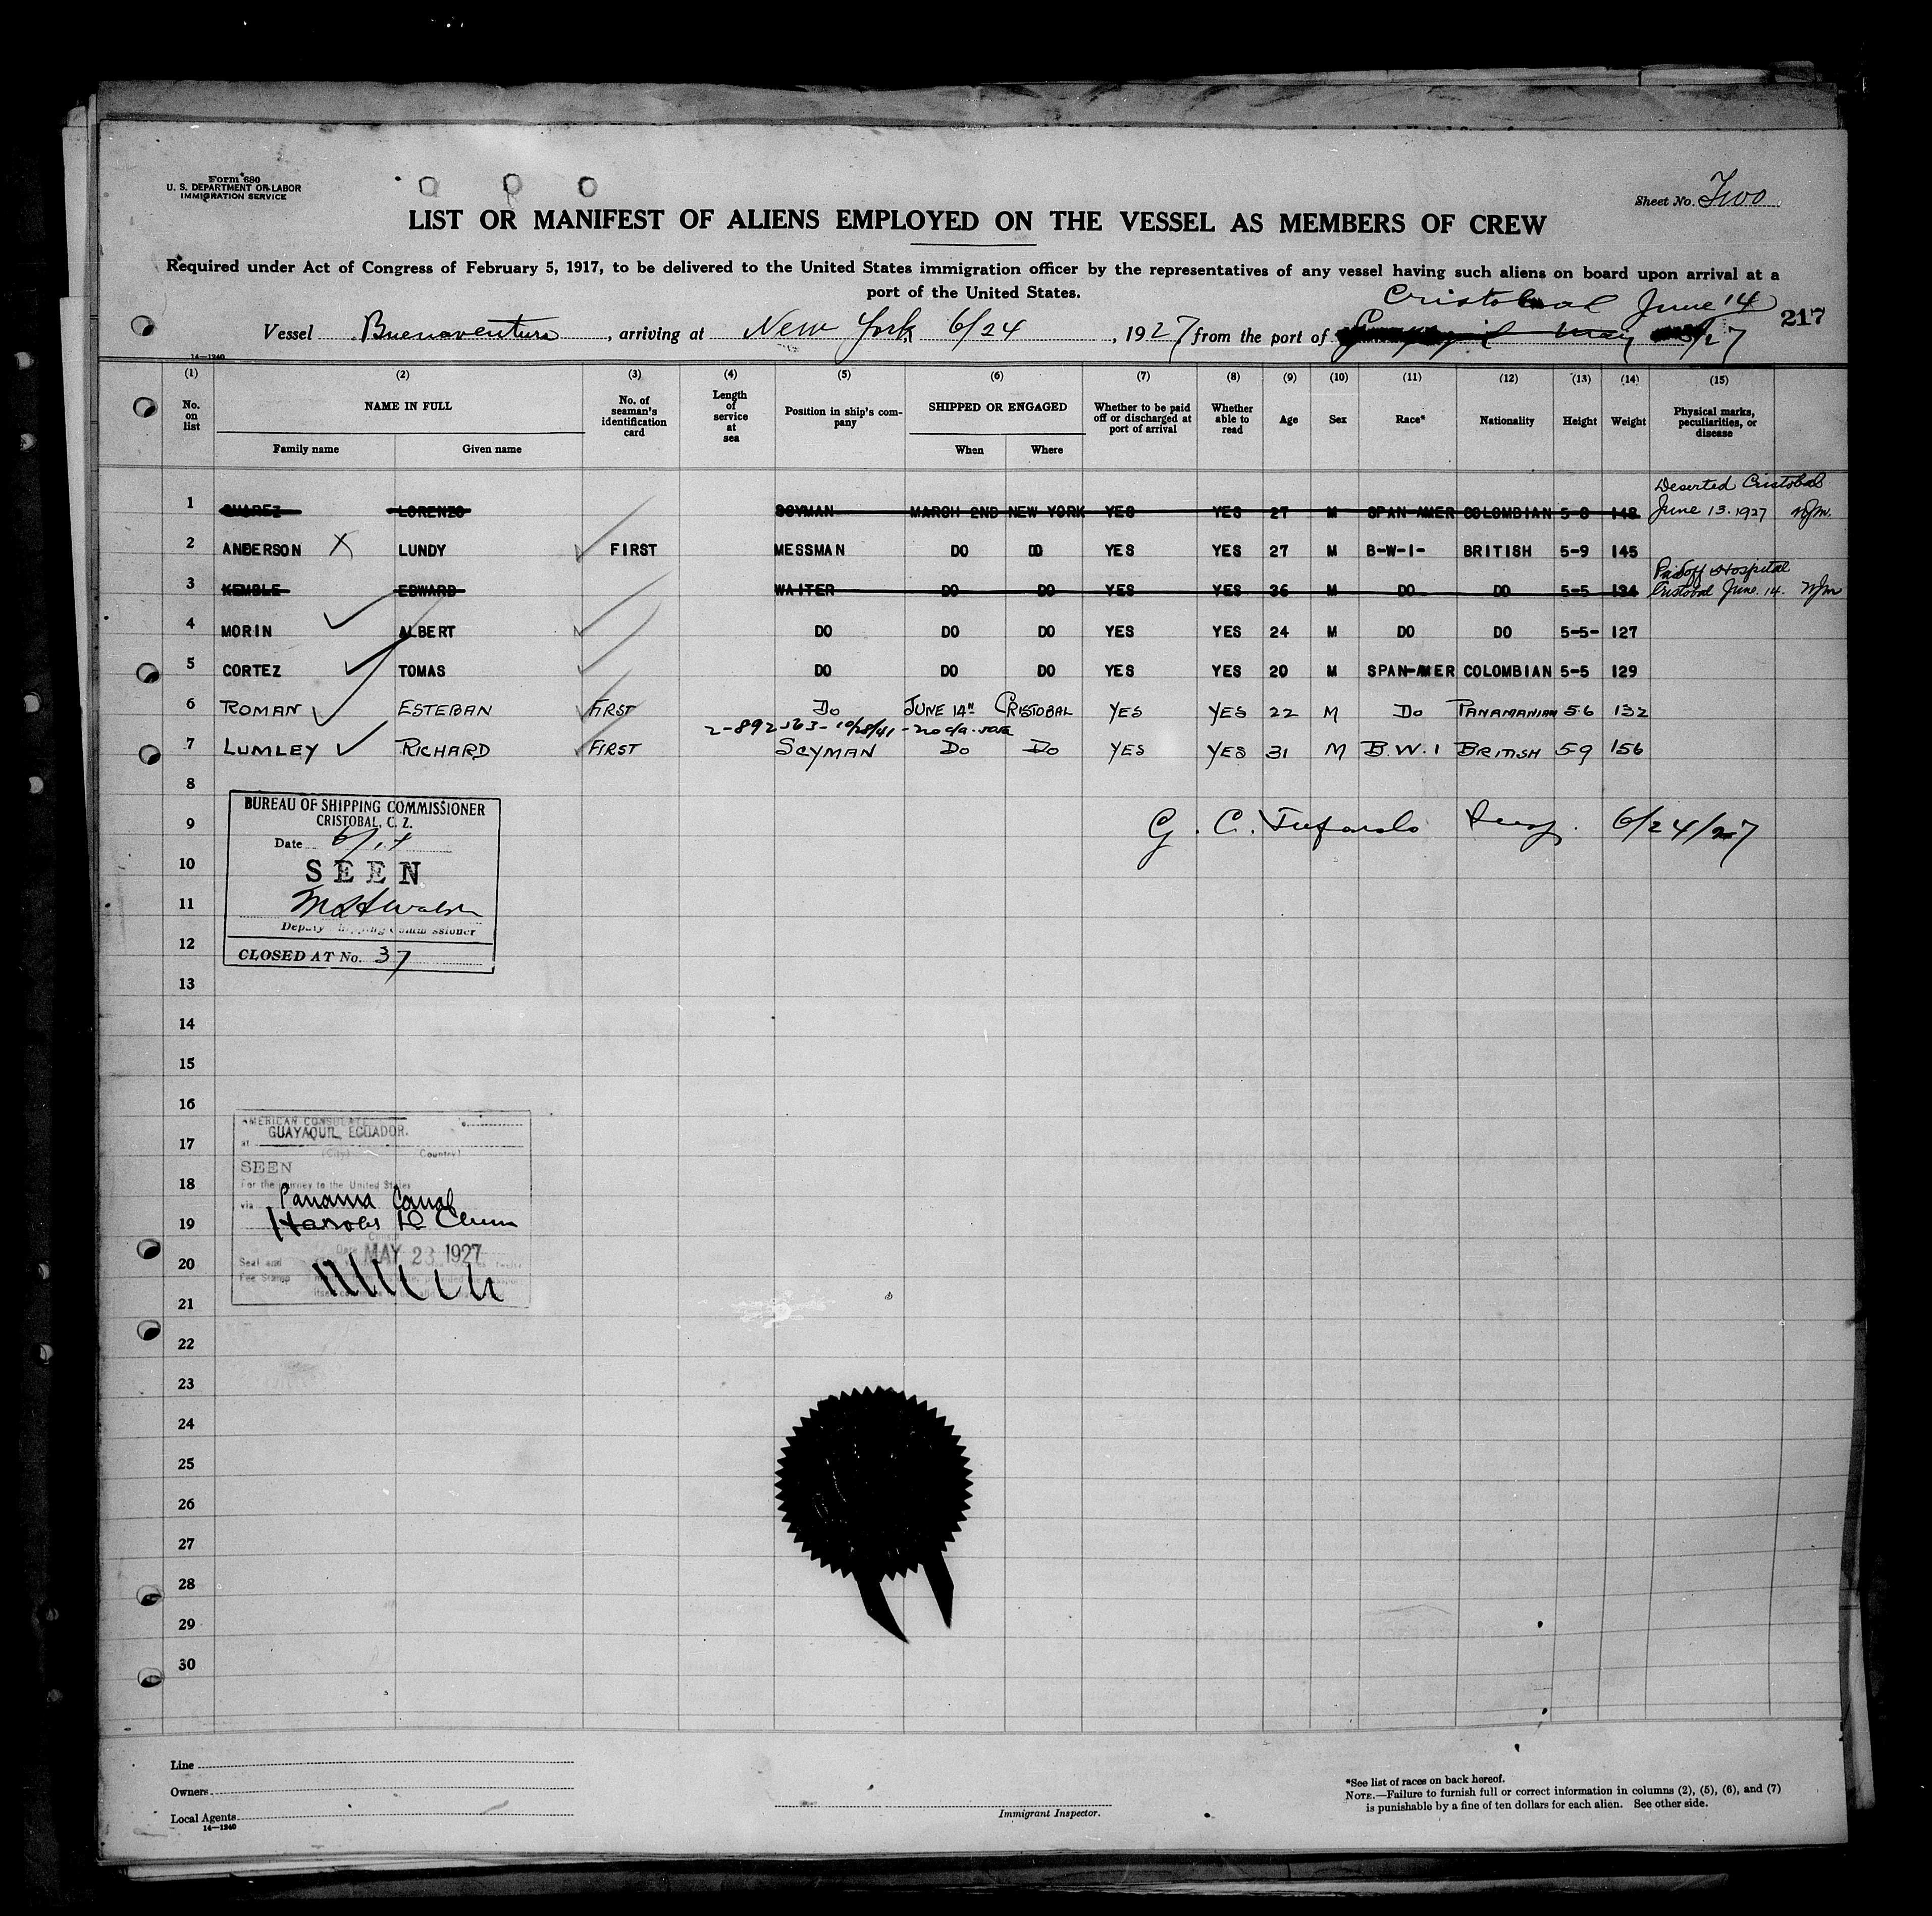 Form 680
U. S. DEPARTMENT OF LABOR
IMMIGRATION SERVICE
Sheet No. Two
LIST OR MANIFEST OF ALIENS EMPLOYED ON THE VESSEL AS MEMBERS OF CREW
Required under Act of Congress of February 5, 1917, to be delivered to the United States immigration officer by the representatives of any vessel having such aliens on board upon arrival at a
port of the United States.
Cristobal June 14
Vessel Buenaventura, arriving at New York, 6/24, 1927 from the port of May /27
217
14—1240
(1) (2) (3) (4) (5) (6) (7) (8) (9) (10) (11) (12) (13) (14) (15)
No. on list NAME IN FULL Family name Given name No. of seaman's identification card Length of service at sea Position in ship's company SHIPPED OR ENGAGED When Where Whether to be paid off or discharged at port of arrival Whether able to read Age Sex Race* Nationality Height Weight Physical marks, peculiarities, or disease
Deserted Cristobal
1 SUAREZ LORENZO SCYMAN MARCH 2ND NEW YORK YES YES 27 M SPAN-AMER COLOMBIAN 5-8 148 June 13. 1927
2 ANDERSON X LUNDY FIRST MESSMAN DO DO YES YES 27 M B-W-I- BRITISH 5-9 145
Paid off Hospital
3 KEMBLE EDWARD WAITER DO DO YES YES 36 M DO DO 5-5 134 Cristobal June. 14.
4 MORIN ALBERT DO DO DO YES YES 24 M DO DO 5-5- 127
5 CORTEZ TOMAS DO DO DO YES YES 20 M SPAN-AMER COLOMBIAN 5-5 129
6 ROMAN ESTEBAN FIRST Do JUNE 14" CRISTOBAL YES YES 22 M Do PANAMANIAN 5 6 132
2-892563-10/28/41-
7 LUMLEY RICHARD FIRST SCYMAN Do Do YES YES 31 M B.W.I BRITISH 5 9 156
8
9
10
11
12
13
14
15
16
17
18
19
20
21
22
23
24
25
26
27
28
29
30
G. C. Insp. 6/24/27
BUREAU OF SHIPPING COMMISSIONER
CRISTOBAL, C. Z.
Date 6/14
SEEN
Deputy Shipping Commissioner
CLOSED AT No. 37
AMERICAN CONSULATE
at GUAYAQUIL, ECUADOR.
(City) Country)
SEEN
For the journey to the United States
via Panama Canal
Harold D Clum
Date MAY 23 1927
Seal and
Fee Stamp
Line
Owners
Local Agents
14—1240
Immigrant Inspector.
*See list of races on back hereof.
NOTE.—Failure to furnish full or correct information in columns (2), (5), (6), and (7)
is punishable by a fine of ten dollars for each alien. See other side.